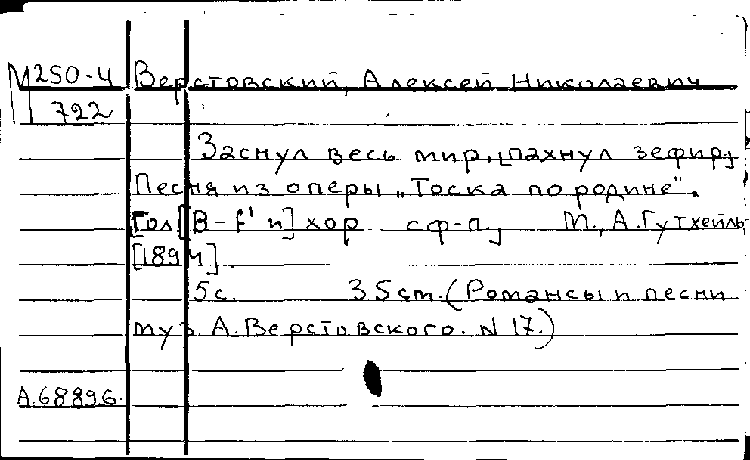 М250-4 Верстовский, Алексей Николаевич
722
Заснул весь мир, [пахнул зефир]
Песня из оперы „Тоска по родине".
Гол [В-f' и] хор с ф-п] М., А. Гутхейль
[1894].
5 с. 35 cm. (Романсы и песни
муз А. Верстовского. N 17.)
А.68896.